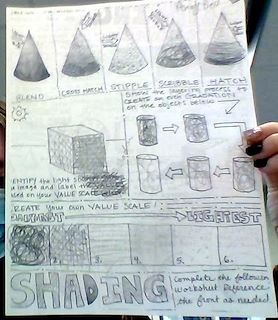 BLEND
CROSS HATCH
STIPPLE
SCRIBBLE
HATCH
Show the layering process to
CREATE an even GRADATION
on the objects below
IDENTIFY the light
a image and label the
used on your VALUE SCALE below
CREATE Your own VALUE SCALE!
DARKEST
LIGHTEST
2.
3.
4.
5.
6.
SHADING
Complete the following
Worksheet Reference
the front as needed